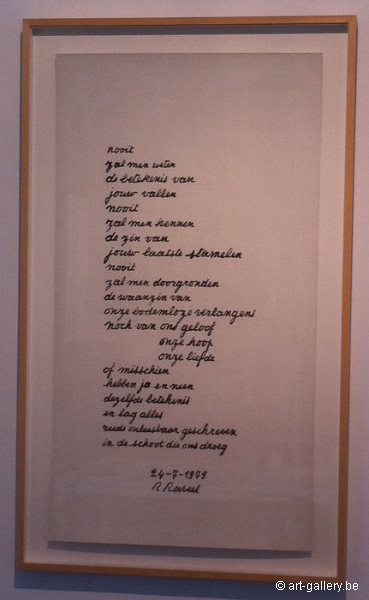 nooit
zal men weten
de betekenis van
jouw vallen
nooit
zal men kennen
de zin van
jouw laatste stamelen
nooit
zal men doorgronden
de waanzin van
onze bodemloze verlangens
noch van ons geloof
onze hoop
onze liefde
of misschien
hebben ja en neen
dezelfde betekenis
en lag alles
reeds onleesbaar geschreven
in de schoot die ons droeg
24-7-1979
R Raveel
© art-gallery.be